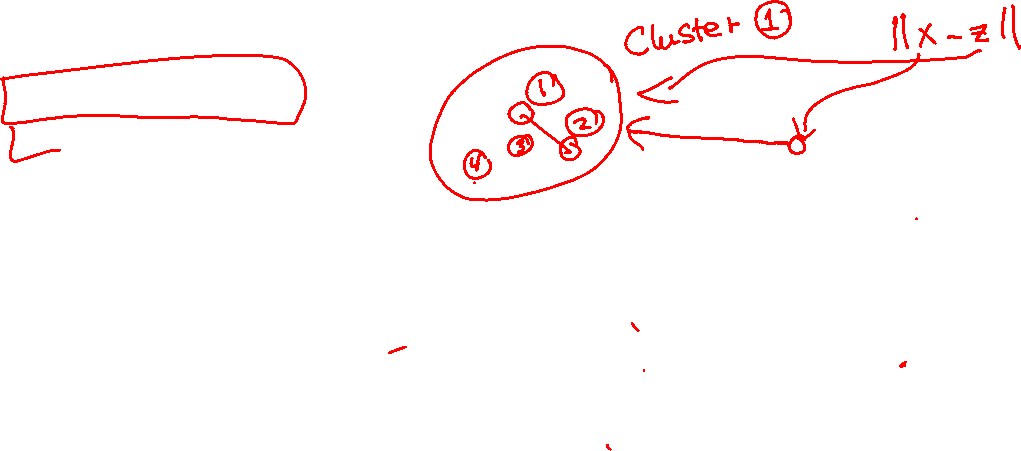 Cluster 1 ||x - z||
1
2
3
4 5